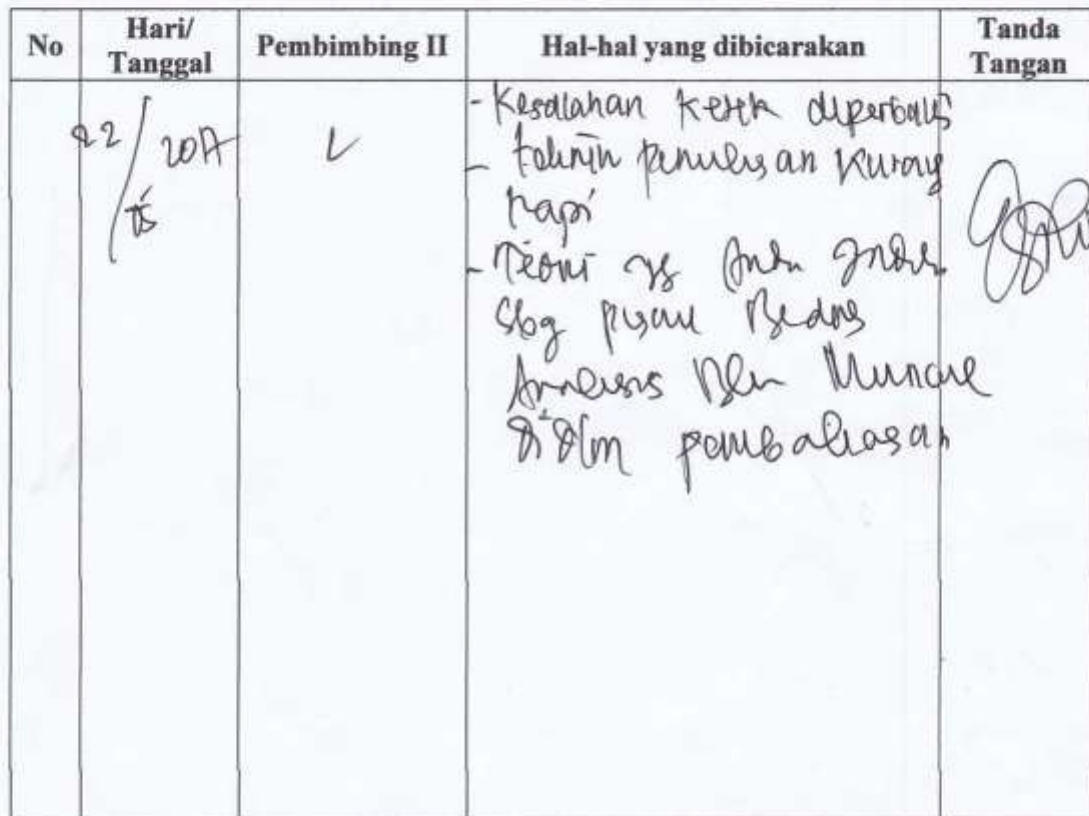 No Hari/ Tanggal Pembimbing II Hal-hal yang dibicarakan Tanda Tangan
22/ 2017
- Kesalahan ketik diperbaiki
- penulisan kurang
rapi
- Teori yg
sbg pisau Bedas
Analisis Blm Muncul
dlm pembahasan